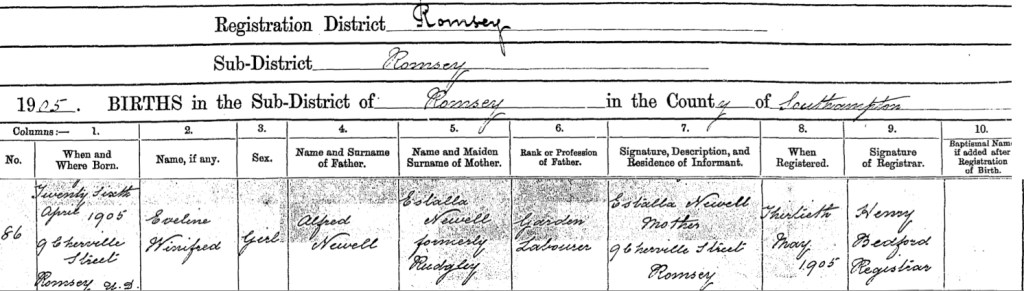 Registration District Romsey
Sub-District Romsey
1905. BIRTHS in the Sub-District of Romsey in the County of Southampton
Columns:— 1. 2. 3. 4. 5. 6. 7. 8. 9. 10.
No. When and Where Born. Name, if any. Sex. Name and Surname of Father. Name and Maiden Surname of Mother. Rank or Profession of Father. Signature, Description, and Residence of Informant. When Registered. Signature of Registrar. Baptismal Name if added after Registration of Birth.
86
Twenty Sixth
April 1905
9 Cherville
Street
Romsey U.D.
Eveline
Winifred
Girl
Alfred
Newell
Estalla
Newell
formerly
Rudgley
Garden
Labourer
Estalla Newell
Mother
9 Cherville Street
Romsey
Thirtieth
May
1905
Henry
Bedford
Registrar